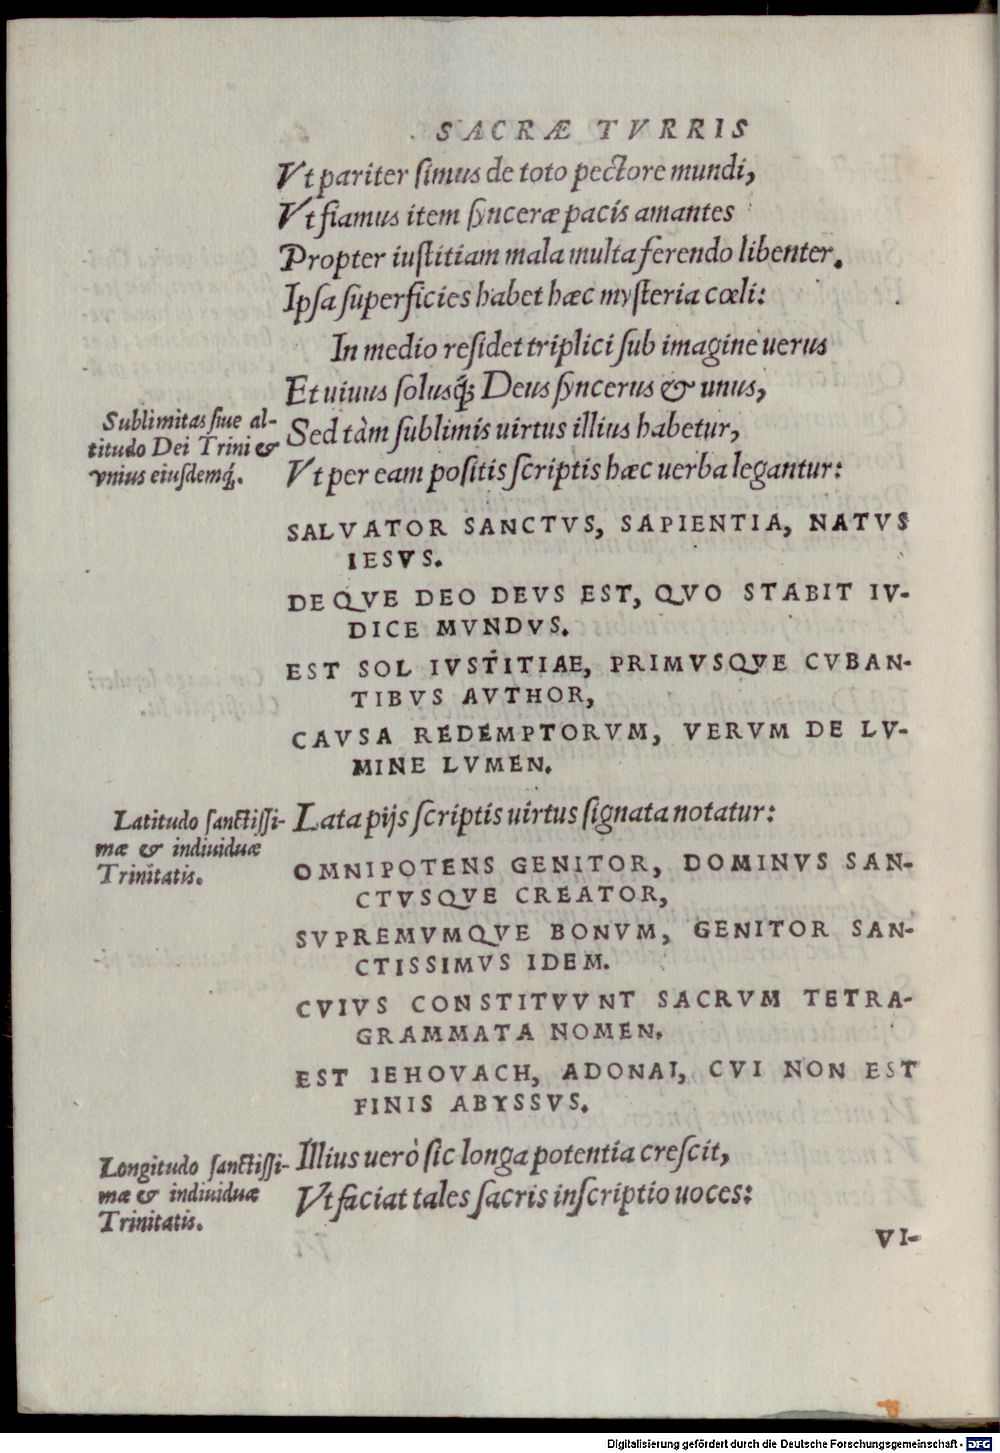 SACRÆ TVRRIS
Vt pariter ſimus de toto pectore mundi,
Vt fiamus item ſynceræ pacis amantes
Propter iuſtitiam mala multa ferendo libenter.
Ipſa ſuperficies habet hæc myſteria cœli:
In medio reſidet triplici ſub imagine uerus
Et uiuus ſolusq́; Deus ſyncerus & unus,
Sublimitas ſiue al-
titudo Dei Trini &
vnius eiuſdemq́.
Sed tàm ſublimis uirtus illius habetur,
Vt per eam poſitis ſcriptis hæc uerba legantur:
SALVATOR SANCTVS, SAPIENTIA, NATVS
IESVS.
DEQVE DEO DEVS EST, QVO STABIT IV-
DICE MVNDVS.
EST SOL IVSTITIAE, PRIMVSQVE CVBAN-
TIBVS AVTHOR,
CAVSA REDEMPTORVM, VERVM DE LV-
MINE LVMEN.
Latitudo ſanctiſſi-
mæ & indiuiduæ
Trinitatis.
Lata pijs ſcriptis uirtus ſignata notatur:
OMNIPOTENS GENITOR, DOMINVS SAN-
CTVSQVE CREATOR,
SVPREMVMQVE BONVM, GENITOR SAN-
CTISSIMVS IDEM.
CVIVS CONSTITVVNT SACRVM TETRA-
GRAMMATA NOMEN.
EST IEHOVACH, ADONAI, CVI NON EST
FINIS ABYSSVS.
Longitudo ſanctiſſi-
mæ & indiuiduæ
Trinitatis.
Illius uerò ſic longa potentia creſcit,
Vt faciat tales ſacris inſcriptio uoces:
VI-
Digitalisierung gefördert durch die Deutsche Forschungsgemeinschaft - DFG